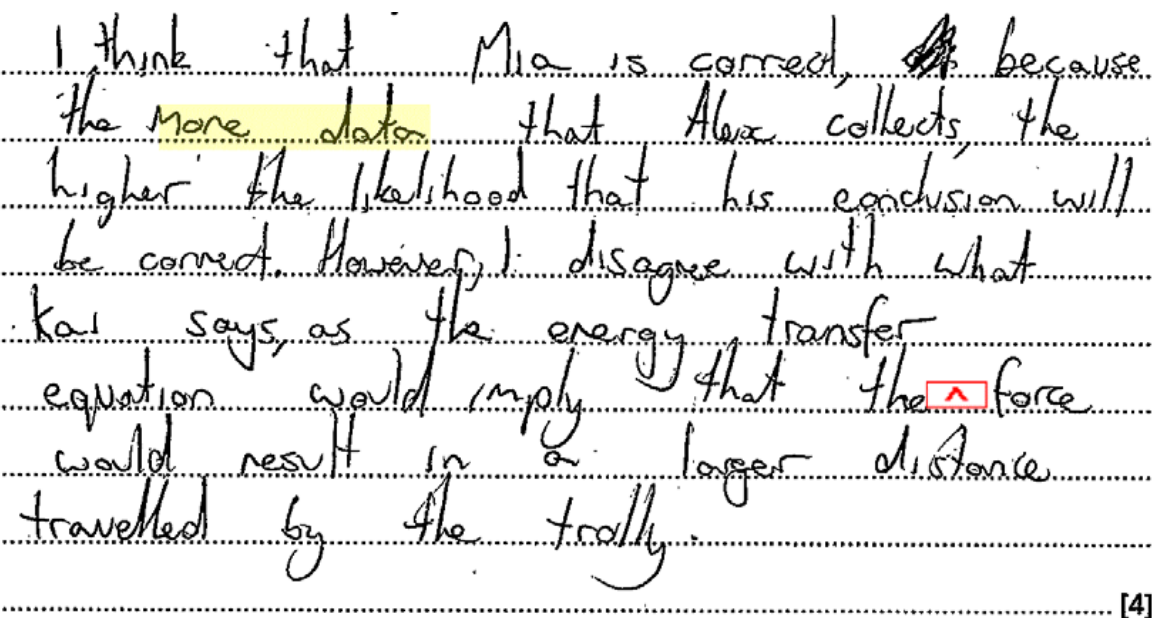 I think that Mia is correct, because
the more data that Alex collects, the
higher the likelihood that his conclusion will
be correct. However, I disagree with what
Kai says, as the energy transfer
equation would imply that the ^ force
would result in a larger distance
travelled by the trolly.
[4]